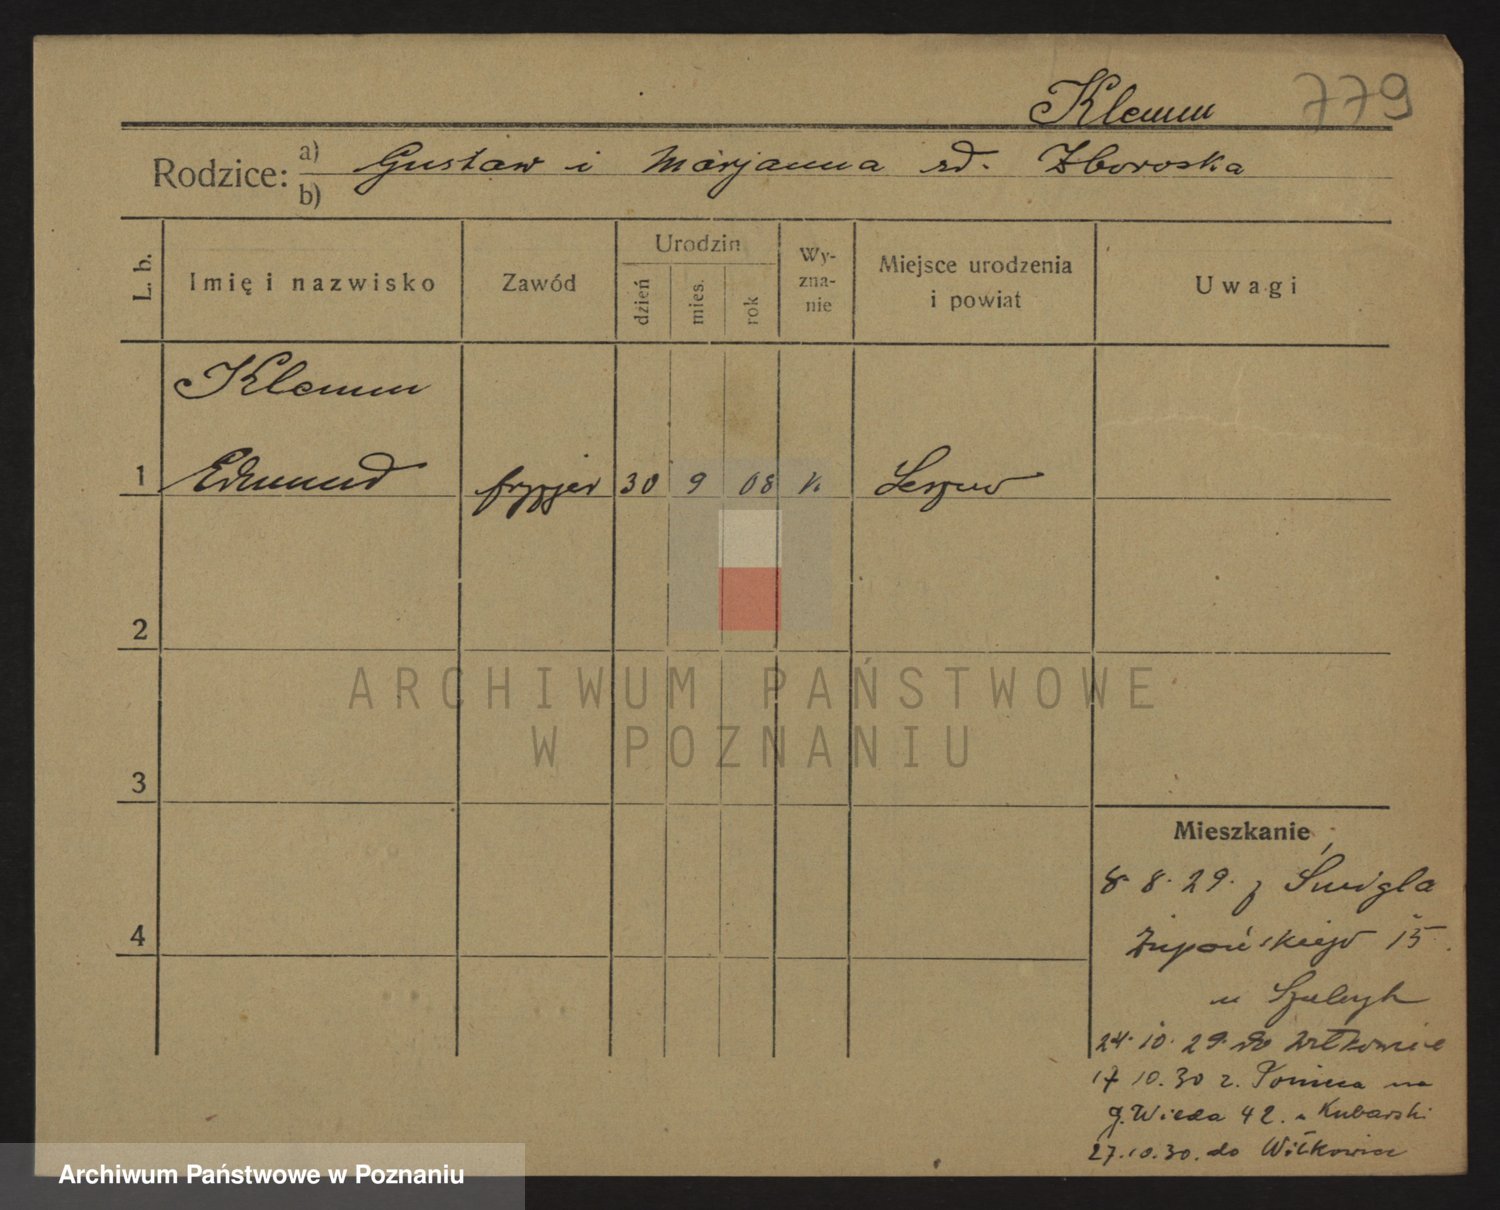 Klemm 779
Rodzice: a) b) Gustaw i Marjanna zd. Zboroska
L. b. Imię i nazwisko Zawód Urodzin dzień mies. rok Wy-zna-nie Miejsce urodzenia i powiat Uwagi
Klemm
1 Edmund fryzjer 30 9 08 k
2
ARCHIWUM PAŃSTWOWE
W POZNANIU
3
Mieszkanie
8. 8. 29. z Śmigla
4
Żupańskiego 15.
u
24. 10. 29. do
17 10. 30 z. na
g. Wilda 42. u Kubarski
27. 10. 30. do Witkowice
Archiwum Państwowe w Poznaniu